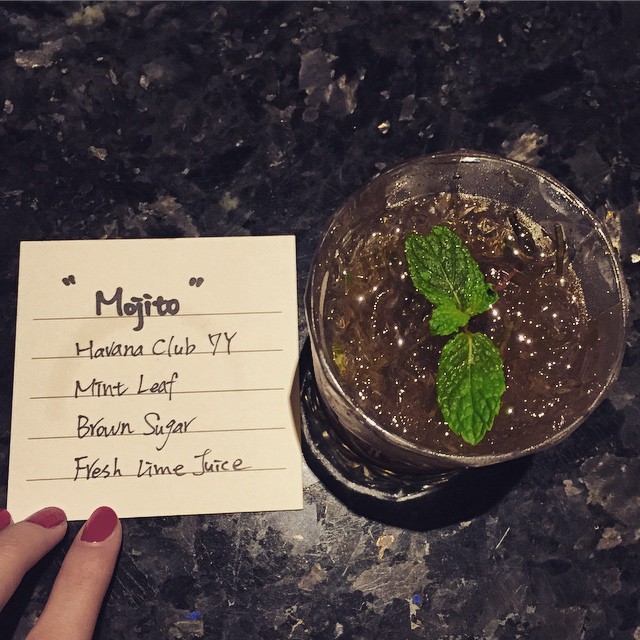 " Mojito "
Havana Club 7Y
Mint Leaf
Brown Sugar
Fresh Lime Juice